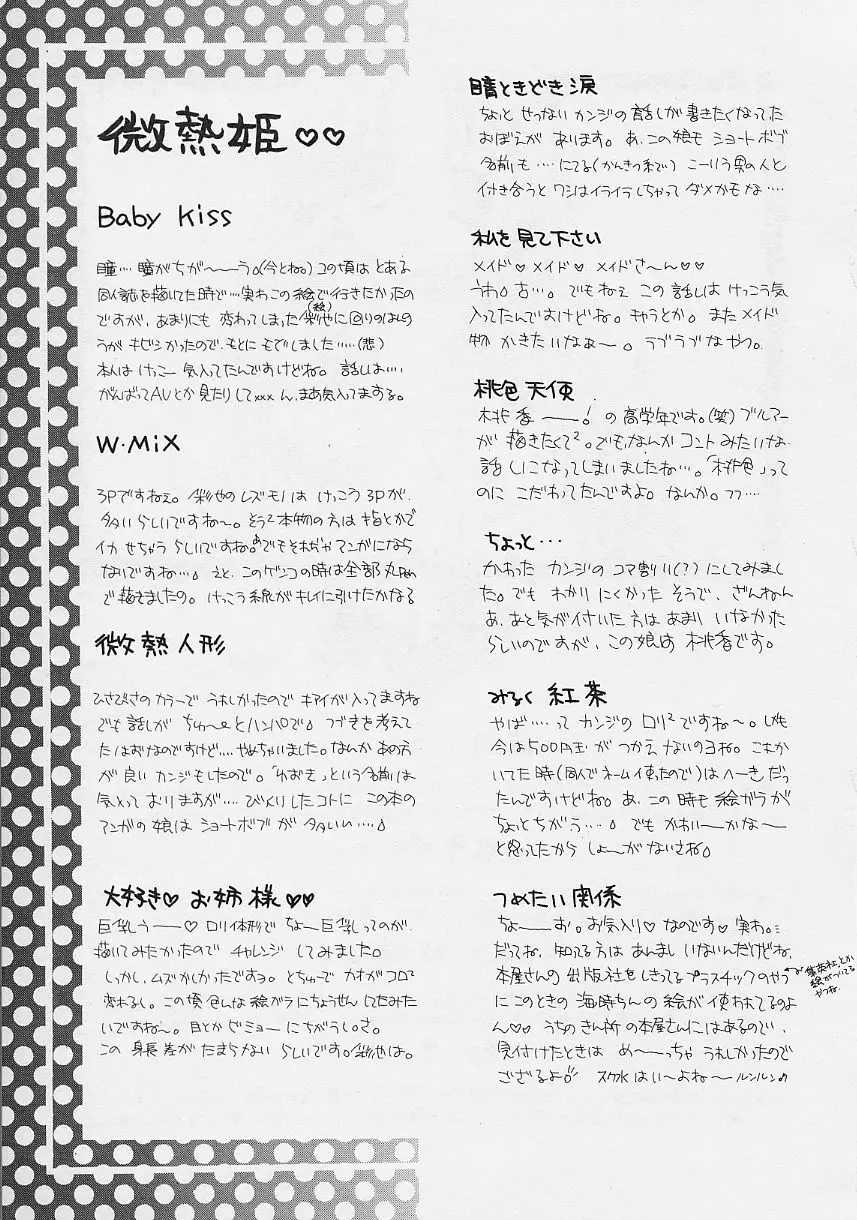 微熱姫♡♡
Baby Kiss
瞳…。瞳がちが〜〜う。(今とね。)コの頃は とある
同人誌を描いてた時で…実わこの絵で行きたかったの
ですが、あまりにも 変わってしまった彩池に回りのはんの
(絵)
うが キビシかったので、もとに もどしました……(悲)
本人は けっこー 気入ってたんですけどね。 話しは…
がんばってAVとか見たりしてxxx ん、まあ気入ってまする。
W・MiX
3Pですねぇ。彩池の レズモノは けっこう3Pが、
多い らしいですね〜。どう²本物の方は 指とかで
イカ せちゃう らしいですね。でもそれぢゃマンガになら
ないですね…。 えと、このゲンコの時は全部丸Pen
で描きましたの。けっこう線がキレイに引けたかなる
微熱人形
ひさびさのカラーで うれしかったので キアイが入ってますね
でも話しが ちゅーとハンパで。 つづきを考えて
たはずなのですけど…。やめちゃいました。なんか あの方
が良い カンジもしたので。「ゆずき」という名前は
気入って おりますが…。びっくりしたコトに この本の
マンガの娘は ショートボブ が 多いい…。
大好き♡ お姉様♡♡
巨乳しぅ〜〜♡ ロリ体形で ちょー巨乳ってのが、
描いてみたかったので チャレンジ してみました。
しかし、ムズかしかったですョ。とちゅーで カオがコロコロ
変わるし。この頃 色んは絵ガラにちょうせん してたみた
いですね〜。目とか ビミョーにちがうしさ。
この 身長差が たまらない らしいです。彩池は。
晴ときどき涙
ちょっと せつない カンジの 話しが書きたくなってた
おぼえが あります。あ、この娘も ショートボブ
名前も …にてる(かんきつ系で) こーいう男の人と
付き合うと ワシはイライラしちゃって ダメかもな…
私を見て下さい
メイド♡メイド♡ メイドさ〜ん♡♡
うわ。古…。でもねぇ この話しは けっこう気
入ってたんですけどね。キャラとか。またメイド
物 かきたいなぁ〜。ラブラブなヤツ。
桃色天使
桃香〜〜!の高学年です。(笑)ブルマー
が 描きたくて²。でも、なんか コントみたいな
話しになってしまいましたね…。「桃色」って
のに こだわってたんですよ。なんか。フフ…
ちょっと…
かわった カンジの コマ割り(?)にしてみまし
た。でも わかりにくかった そうで、ざんねん
あ、あと気が付いた方は あまり いなかった
らしいのですが、この娘は 桃香です。
みるく紅茶
やば…って カンジの ロリ²ですね〜。しかも
今は500円玉が つかえないのョね。これか
いてた時(同人でネーム使ったので)は へーきだっ
たんですけどね。あ、この時も 絵ガラが
ちょっとちがう…。でも かわい〜かな〜
と思ってたから しょ〜がないさね。
つめたい関係
ちょ〜〜お。お気入り♡なのです♡ 実わ。
だってね、知ってる方は あんまし いないんだけどね、
本屋さんの 出版社をしきってるプラスチックのやう
集英社、とか
絵がついてる
やつね
に このときの 海時ちんの 絵が 使われてるのよ
ん♡♡ うちのきん所の 本屋さんには あるので、
見付けたときは め〜〜っちゃ うれしかったので
ござるよ。 スク水 はい〜よね〜 ルンルン♪